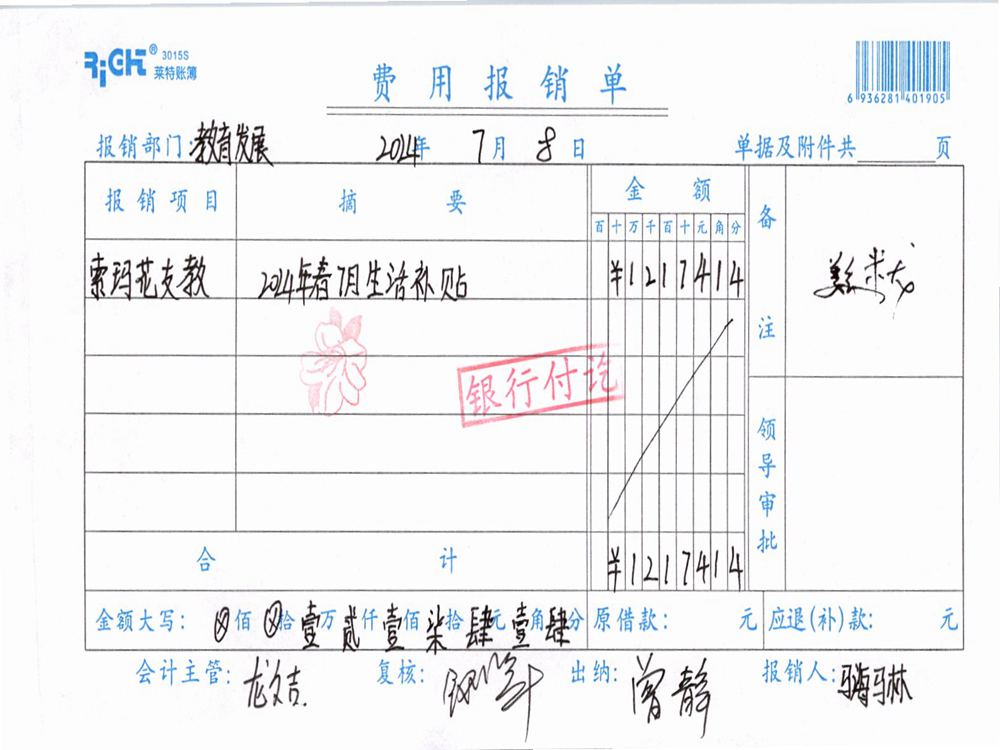 RiGHT® 3015S
莱特账簿
费用报销单
6 936281 401905
报销部门:教育发展 2014年 7月 8日 单据及附件共 页
报销项目 摘要 金额 备注
百十万千百十元角分
索玛花支教 2014年春7月生活补贴 ¥1217414
银行付讫
领导审批
合计 ¥1217414
金额大写: ⊗佰⊗拾壹万贰仟壹佰柒拾肆元壹角肆分 原借款: 元 应退(补)款: 元
会计主管:龙文吉 复核: 出纳:曾静 报销人: